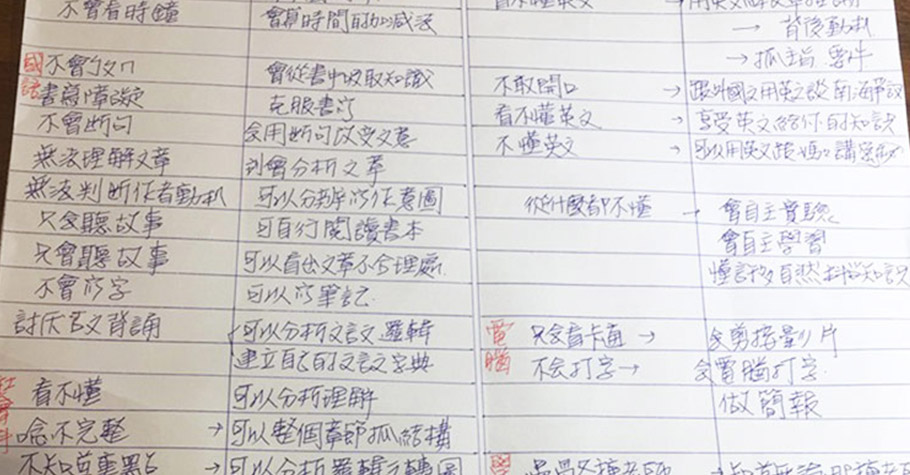 不會看時鐘 會算時間 自加減法
國語 不會ㄅㄆㄇ 會從書中吸取知識
書寫障礙 克服書寫
不會断句 会用断句改变文意
無法理解文章 到會分析文章
無法判断作者動机 可以分辨寫作意圖
只会聽故事 可自行閱讀書本
只會聽故事 可以看出文章不合理處
不會寫字 可以寫筆記
討厌文背誦 可以分析文言文邏輯
建立自己的文言文字典
社會科 看不懂 可以分析理解
唸不完整 → 可以整個章節抓結構
不知故事黑白 → 可以分析邏輯
看不懂英文 → 用英文
→ 背後動机
→ 抓主旨 要件
不敢開口 → 跟外國人用英文談
看不懂英文 → 享受英文給你的知識
不懂英文 → 可以用英文跟媽媽講
從什麼都不懂 → 會自主實驗
會自主學習
懂
電腦 只会看卡通 → 会剪接影片
不会打字 → 会電腦打字
做簡報